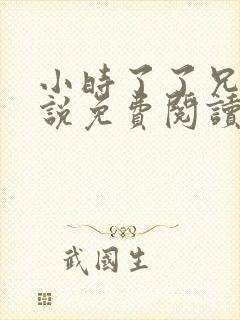 小時了了兄
說免費閱讀
武國生